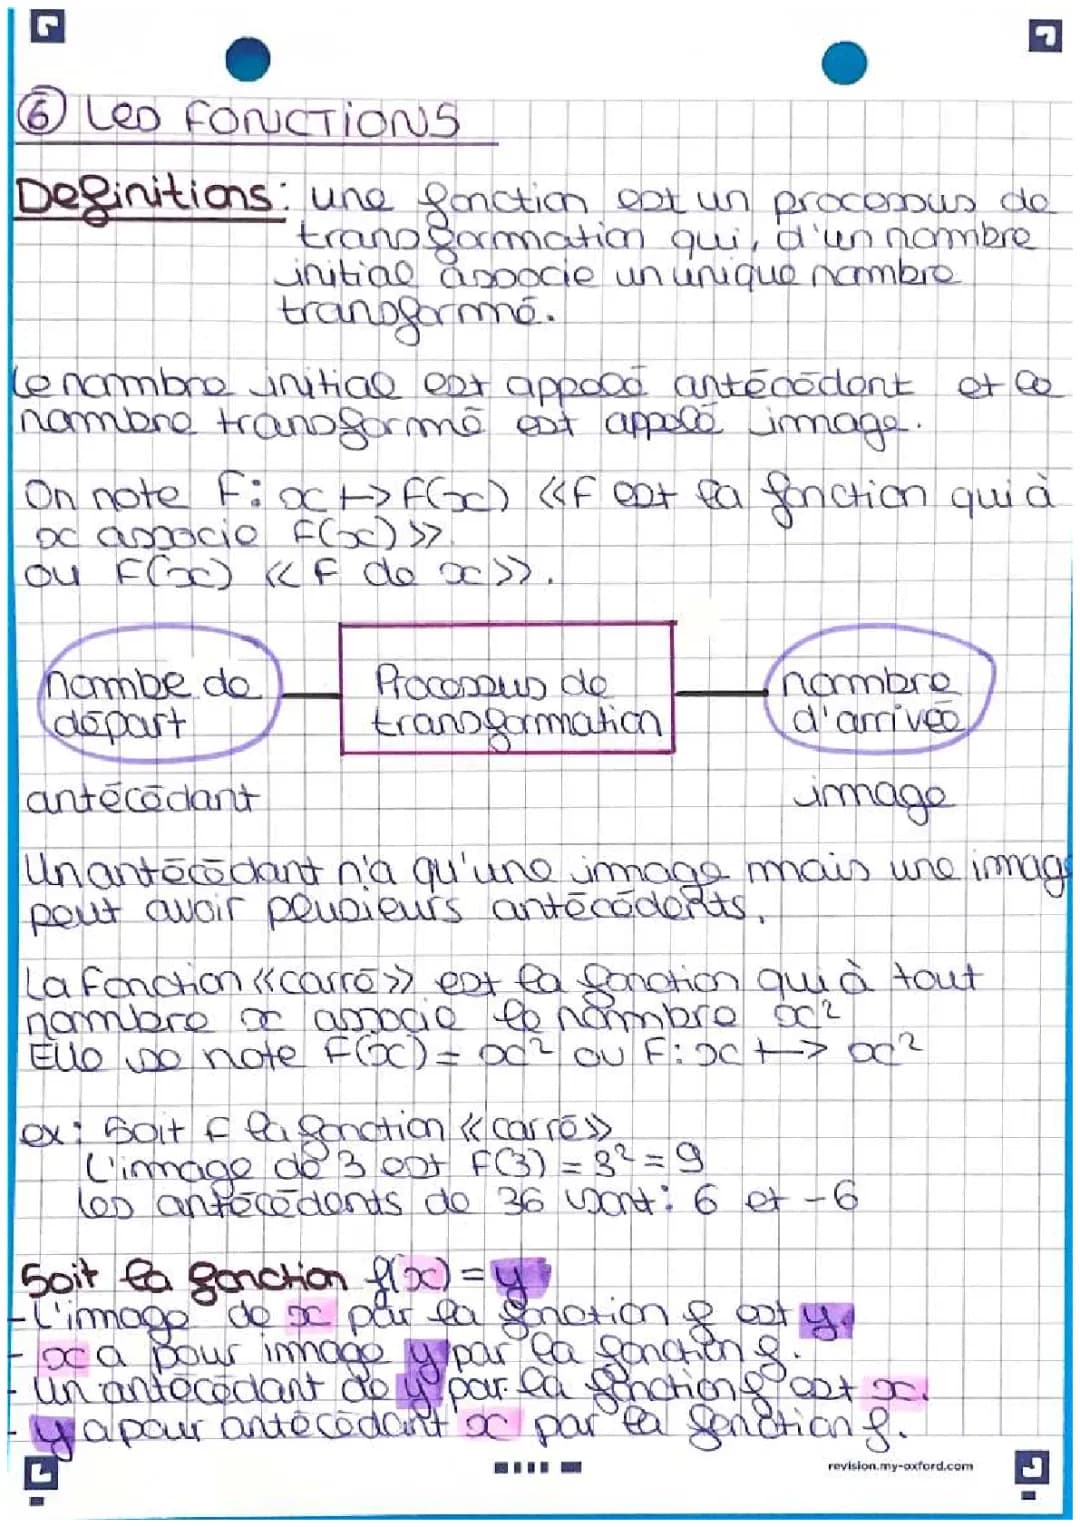 6 Les FONCTIONS
Definitions: une fonction est un processus de
transformation qui, d'un nombre
initial associe un unique nombre
transformé.
Le nombre initial est appelé antécédent et le
nombre transformé est appelé image.
On note F: x ↦ F(x) «F est la fonction qui à
x associe F(x)»
ou F(x) «F de x».
nombe de
départ
Processus de
transformation
nombre
d'arrivée
antécédant
image
Un antécédant n'a qu'une image mais une imag
peut avoir pulsieurs antécédents.
La fonction «carré» est la fonction qui à tout
nombre x associe le nombre x²
Elle se note F(x) = x² ou F: x ↦ x²
ex: Soit F la fonction «carré»
L'image de 3 est F(3) = 3² = 9
les antécédents de 36 sont: 6 et -6
Soit la fonction f(x) = y
- L'image de x par la fonction f est y.
- x a pour image y par la fonction f.
- Un antécédant de y par la fonction f est x.
- y a pour antécédant x par la fonction f.
revision.my-oxford.com